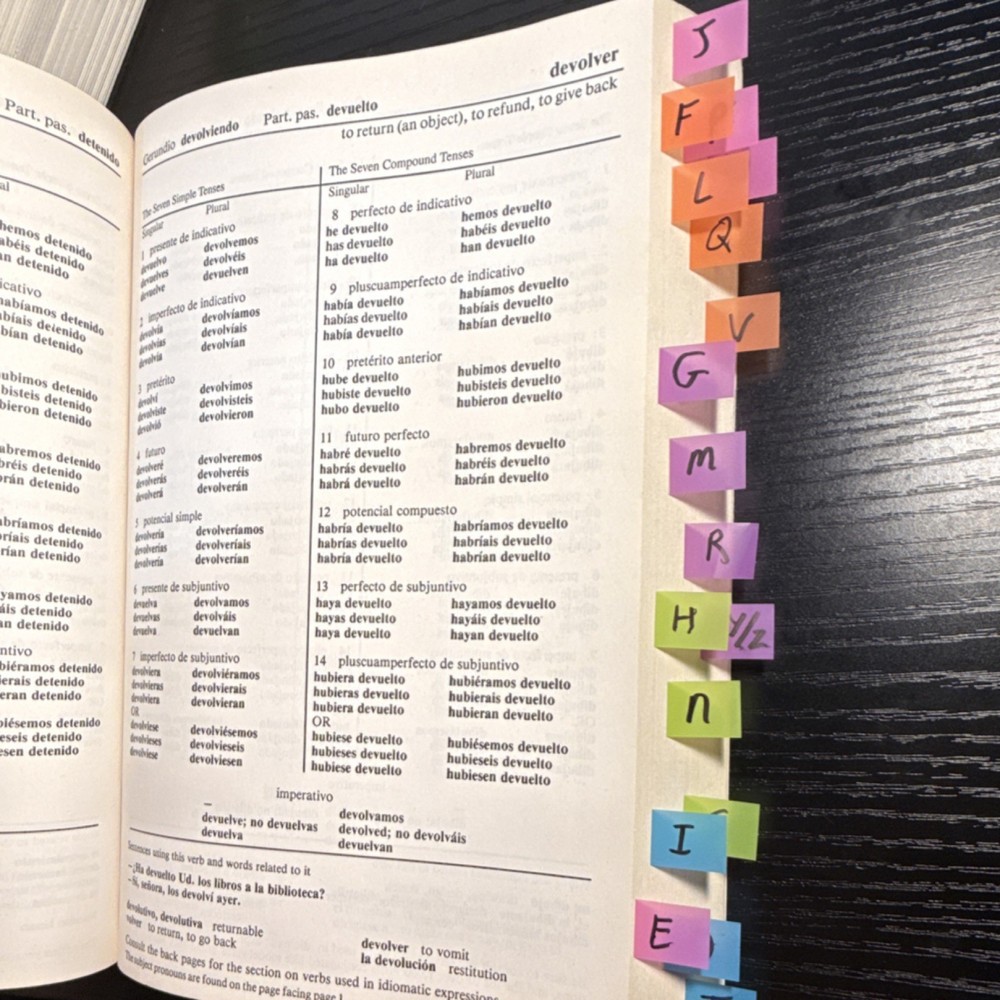 Part. pas. detenido
hemos detenido
abéis detenido
an detenido
icativo
habíamos detenido
bíais detenido
bían detenido
ubimos detenido
bisteis detenido
bieron detenido
abremos detenido
bréis detenido
brán detenido
abríamos detenido
ríais detenido
rían detenido
yamos detenido
áis detenido
an detenido
ntivo
biéramos detenido
ierais detenido
eran detenido
biésemos detenido
eseis detenido
esen detenido
devolver
Gerundio devolviendo Part. pas. devuelto
to return (an object), to refund, to give back
The Seven Simple Tenses
Singular Plural
1 presente de indicativo
devuelvo devolvemos
devuelves devolvéis
devuelve devuelven
2 imperfecto de indicativo
devolvía devolvíamos
devolvías devolvíais
devolvía devolvían
3 pretérito
devolví devolvimos
devolviste devolvisteis
devolvió devolvieron
4 futuro
devolveré devolveremos
devolverás devolveréis
devolverá devolverán
5 potencial simple
devolvería devolveríamos
devolverías devolveríais
devolvería devolverían
6 presente de subjuntivo
devuelva devolvamos
devuelvas devolváis
devuelva devuelvan
7 imperfecto de subjuntivo
devolviera devolviéramos
devolvieras devolvierais
devolviera devolvieran
OR
devolviese devolviésemos
devolvieses devolvieseis
devolviese devolviesen
The Seven Compound Tenses
Singular Plural
8 perfecto de indicativo
he devuelto hemos devuelto
has devuelto habéis devuelto
ha devuelto han devuelto
9 pluscuamperfecto de indicativo
había devuelto habíamos devuelto
habías devuelto habíais devuelto
había devuelto habían devuelto
10 pretérito anterior
hube devuelto hubimos devuelto
hubiste devuelto hubisteis devuelto
hubo devuelto hubieron devuelto
11 futuro perfecto
habré devuelto habremos devuelto
habrás devuelto habréis devuelto
habrá devuelto habrán devuelto
12 potencial compuesto
habría devuelto habríamos devuelto
habrías devuelto habríais devuelto
habría devuelto habrían devuelto
13 perfecto de subjuntivo
haya devuelto hayamos devuelto
hayas devuelto hayáis devuelto
haya devuelto hayan devuelto
14 pluscuamperfecto de subjuntivo
hubiera devuelto hubiéramos devuelto
hubieras devuelto hubierais devuelto
hubiera devuelto hubieran devuelto
OR
hubiese devuelto hubiésemos devuelto
hubieses devuelto hubieseis devuelto
hubiese devuelto hubiesen devuelto
imperativo
— devolvamos
devuelve; no devuelvas devolved; no devolváis
devuelva devuelvan
Sentences using this verb and words related to it
—¿Ha devuelto Ud. los libros a la biblioteca?
—Sí, señora, los devolví ayer.
devolutivo, devolutiva returnable
volver to return, to go back
devolver to vomit
la devolución restitution
Consult the back pages for the section on verbs used in idiomatic expressions
The subject pronouns are found on the page facing page 1
J
F
L
Q
V
G
M
R
H
Y/Z
N
I
E